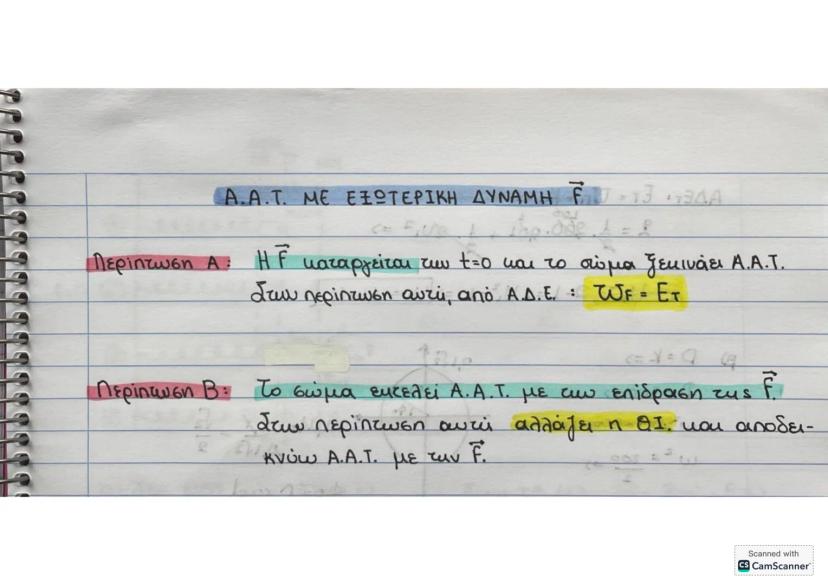 Α.Α.Τ. ΜΕ ΕΞΩΤΕΡΙΚΗ ΔΥΝΑΜΗ F⃗.
Περίπτωση Α: Η F⃗ καταργείται την t=0 και το σώμα ξεκινάει Α.Α.Τ.
Στην περίπτωση αυτή, από Α.Δ.Ε. : WF = ET
Περίπτωση Β: Το σώμα εκτελεί Α.Α.Τ. με την επίδραση της F⃗.
Στην περίπτωση αυτή αλλάζει η ΘΙ. και αποδει-
κνύω Α.Α.Τ. με την F⃗.
Scanned with
CS CamScanner